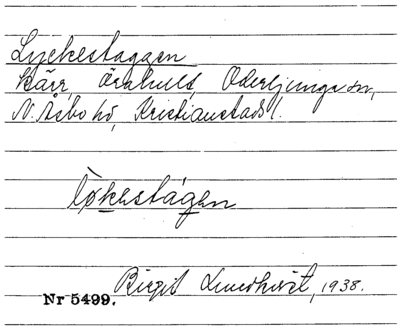 Lyckestaggen
Kärr, Örahult, Oderljunga sn,
N. Åsbo hd, Kristianstads l.
løkestágen
Birgit Lundkvist, 1938.
Nr 5499.